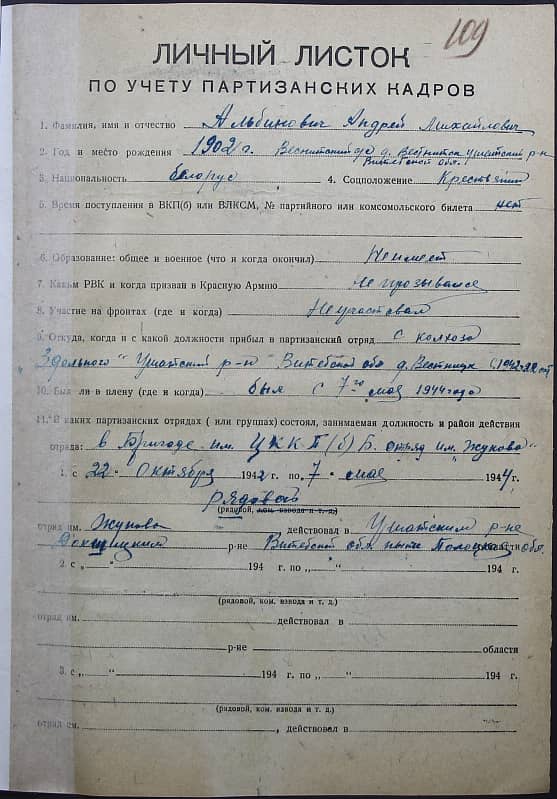 109
ЛИЧНЫЙ ЛИСТОК
ПО УЧЕТУ ПАРТИЗАНСКИХ КАДРОВ
1. Фамилия, имя и отчество Альбинович Андрей Михайлович
2. Год и место рождения 1902 г. д. Ушатский р-н
Витебской обл.
3. Национальность белорус 4. Соцположение Крестьянин
5. Время поступления в ВКП(б) или ВЛКСМ, № партийного или комсомольского билета нет
6. Образование: общее и военное (что и когда окончил) Не имеет
7. Каким РВК и когда призван в Красную Армию Не призывался
8. Участие на фронтах (где и когда) Не участвовал
9. Откуда, когда и с какой должности прибыл в партизанский отряд с колхоза
Ушатский р-н Витебской обл д.
10. Был ли в плену (где и когда) был с 7го мая 1944 года
11. В каких партизанских отрядах ( или группах) состоял, занимаемая должность и район действия
отряда: в Бригаде им. ЦККП(б)Б. отряд им. "Жукова"
1. с 22 " Октября 1942 г. по "7 " мая 1944 г.
рядовой
(рядовой, ком. взвода и т. д.)
отряд им. Жукова действовал в Ушатским р-не
Докшицким р-не Витебской обл. ныне Полоцкая области обл.
2. с „ “ 194 г. по „ “ 194 г.
(рядовой, ком. взвода и т. д.)
отряд им. действовал в
р-не области
3. с „ “ 194 г. по „ “ 194 г.
(рядовой, ком. взвода и т. д.)
отряд им. , действовал в